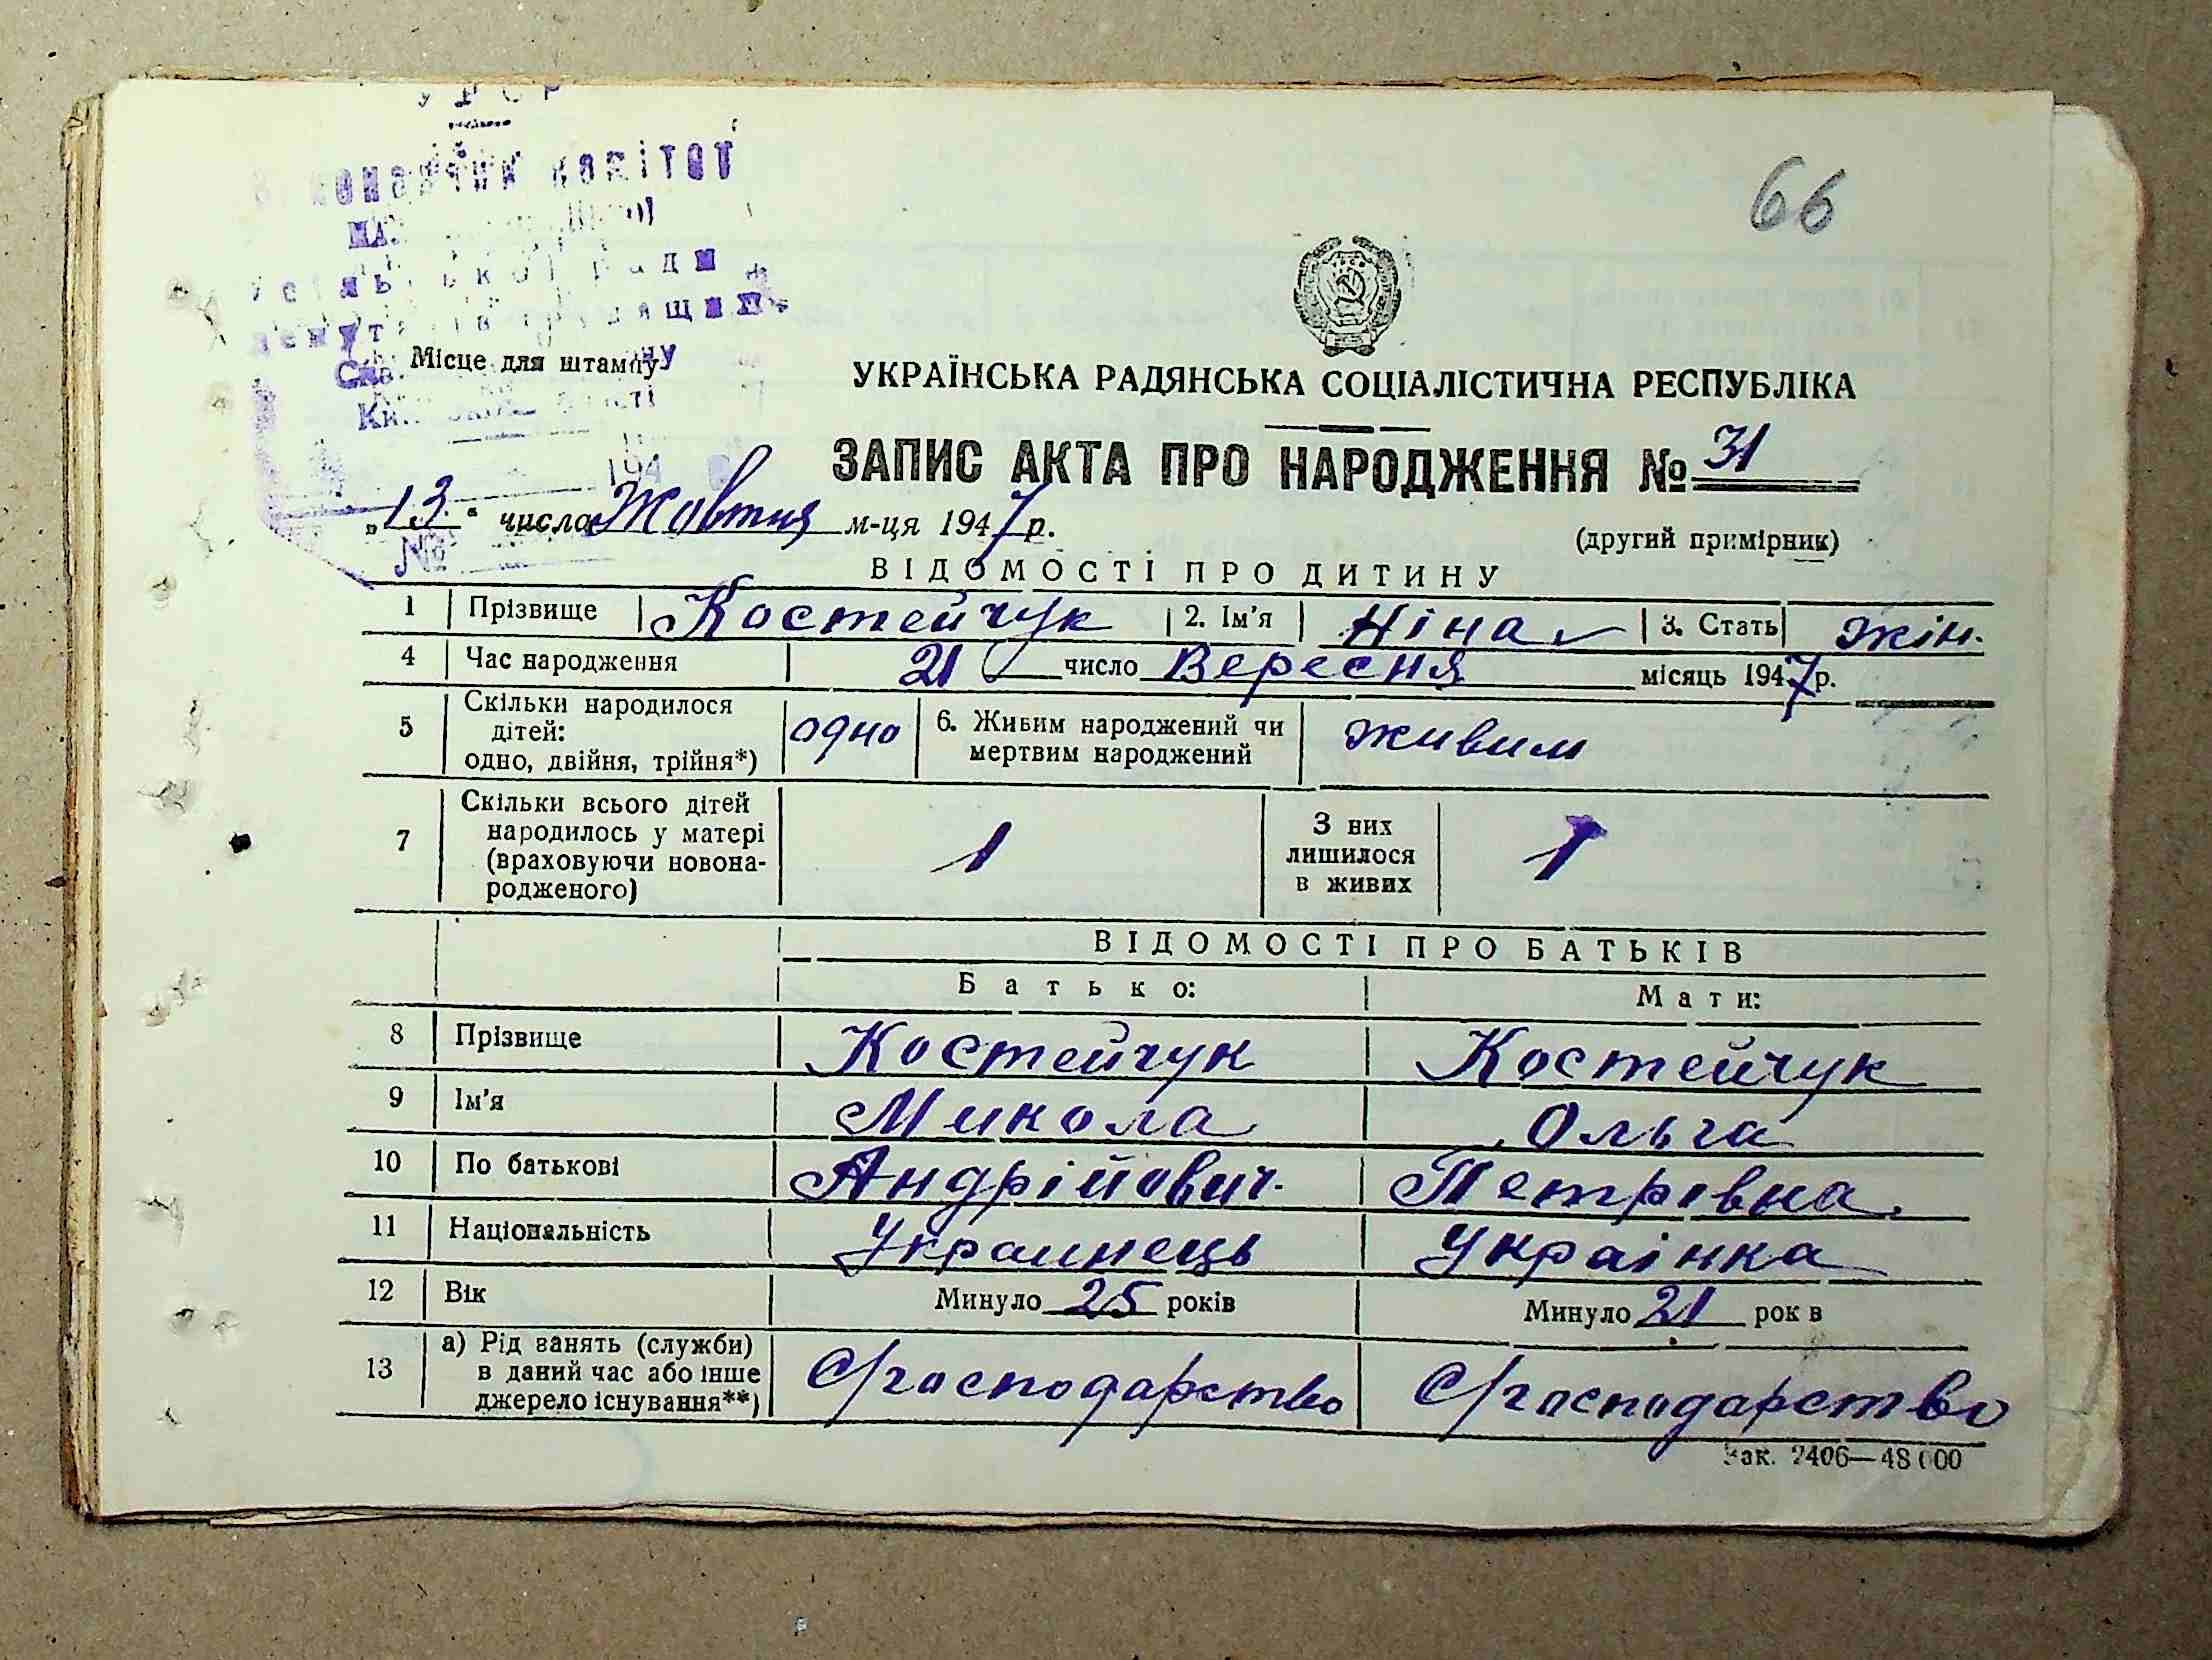 66
УКРАЇНСЬКА РАДЯНСЬКА СОЦІАЛІСТИЧНА РЕСПУБЛІКА
Місце для штампу
ЗАПИС АКТА ПРО НАРОДЖЕННЯ № 31
„13“ числа Жовтня м-ця 1947 р.
(другий примірник)
ВІДОМОСТІ ПРО ДИТИНУ
1 Прізвище Костейчук 2. Ім'я Ніна 3. Стать жін.
4 Час народження 21 число Вересня місяць 1947 р.
5 Скільки народилося дітей: одно, двійня, трійня*) одно 6. Живим народжений чи мертвим народжений живим
7 Скільки всього дітей народилось у матері (враховуючи новона-родженого) 1 З них лишилося в живих 1
ВІДОМОСТІ ПРО БАТЬКІВ
Батько: Мати:
8 Прізвище Костейчук Костейчук
9 Ім'я Микола Ольга
10 По батькові Андрійович. Петрівна
11 Національність Украинець Українка
12 Вік Минуло 25 років Минуло 21 рок в
13 а) Рід занять (служби) в даний час або інше джерело існування**) С/господарство С/господарство
Зак. 2406—48 000